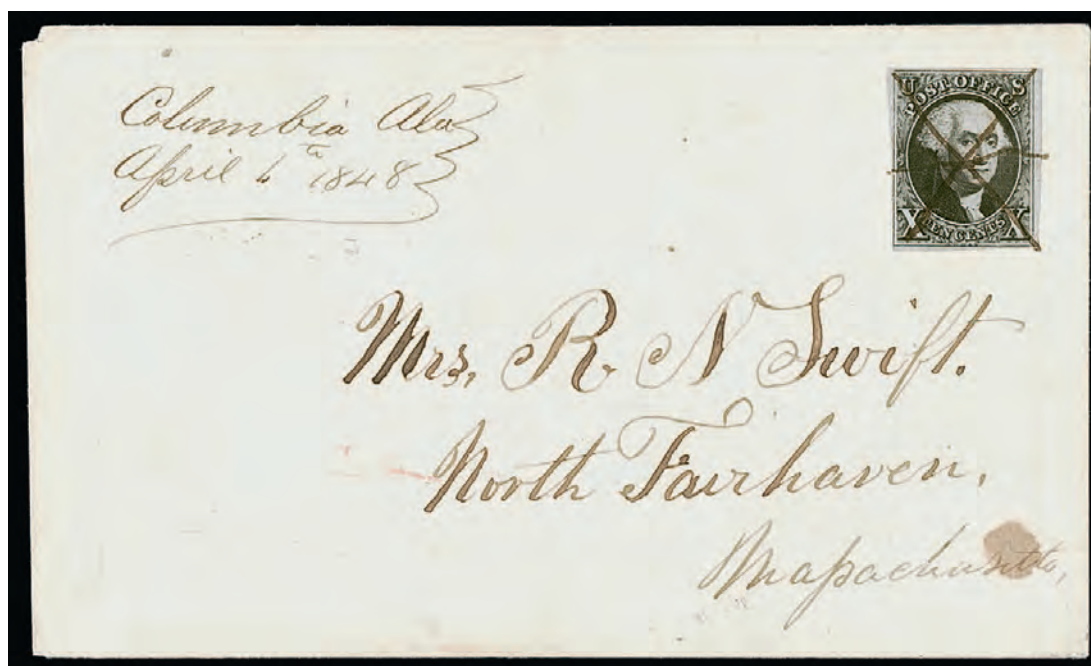 Columbia Ala
April 6th 1848
U S
POST OFFICE
X TEN CENTS X
Mrs. R. N Swift.
North Fairhaven,
Massachusetts,